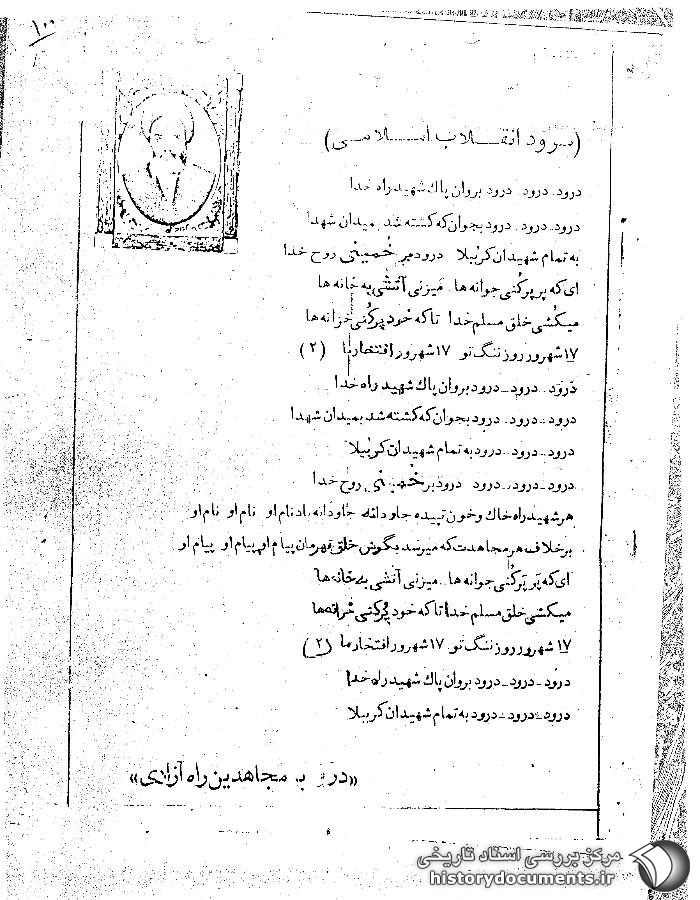 ۱۰۰
(سرود انقلاب اسلامی)
درود. درود. درود بروان پاك شهید راه خدا
درود. درود. درود بجوان که کشته شد بمیدان شهدا
به تمام شهیدان کربلا درود بر خمینی روح خدا
ای که پر پر کُنی جوانه ها. میزنی آتشی به خانه ها
میکشی خلق مسلم خدا تا که خود پر کُنی خزانه ها
۱۷ شهرور روز ننگ تو ۱۷ شهرور افتخار ما (۲)
درود. درود_ درود بروان پاك شهید راه خدا
درود_ درود. درود بجوان که کشته شد بمیدان شهدا
درود_ درود_ درود به تمام شهیدان کربلا
درود_ درود_ درود درود بر خمینی روح خدا
هر شهید راه خاك و خون تپیده جاودانه جاودانه باد نام او نام او نام او
برخلاف هر مجاهدت که میرسد بگوش خلق قهرمان پیام او پیام او پیام او
ای که پَر پَر کُنی جوانه ها. میزنی آتشی به خانه ها
میکشی خلق مسلم خدا تا که خود پُر کُنی خزانه ها
۱۷ شهرور روز ننگ تو ۱۷ شهرور افتخار ما (۲)
درود_ درود_ درود بروان پاك شهید راه خدا
درود_ درود_ درود به تمام شهیدان کربلا
«درود به مجاهدین راه آزادی»
مرکز بررسی اسناد تاریخی
historydocuments.ir